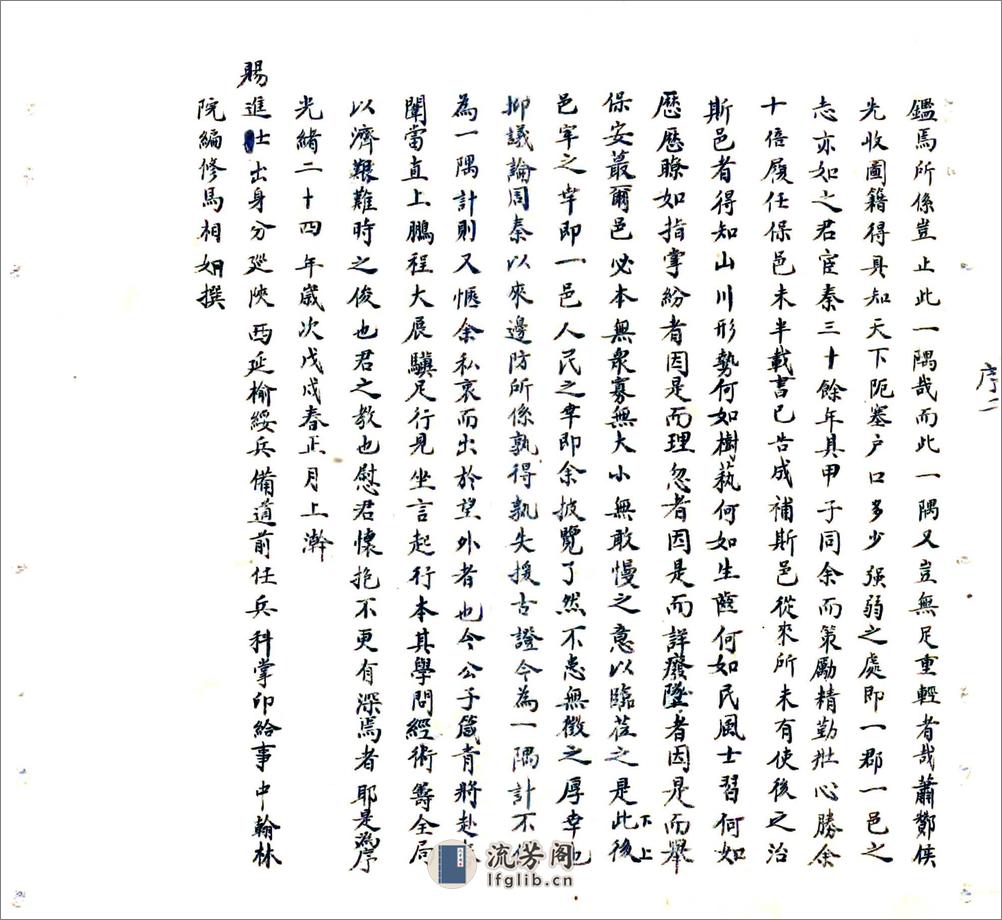 序二
鑑焉所係豈止此一隅哉而此一隅又豈無足重輕者哉蕭酇侯
先收圖籍得具知天下阨塞户口多少强弱之處即一郡一邑之
志亦如之君宦秦三十餘年具甲子同余而策勵精勤壯心勝余
十倍履任保邑未半載書已告成補斯邑從來所未有使後之治
斯邑者得知山川形勢何如樹藝何如生蓄何如民風士習何如
歷歷瞭如指掌紛者因是而理忽者因是而詳廢墜者因是而舉
保安蕞爾邑必本無衆寡無大小無敢慢之意以臨莅之是此後
下上
邑宰之幸即一邑人民之幸即余披覽了然不患無徵之厚幸也
抑議論周秦以來邊防所係孰得孰失援古證今為一隅計不
為一隅計則又愜余私衷而出於望外者也今公子箴青將赴
闈當直上鵬程大展驥足行見坐言起行本其學問經術籌全局
以濟艱難時之俊也君之教也慰君懷抱不更有深焉者耶是為序
光緒二十四年歲次戊戌春正月上澣
賜進士出身分廵陝西延榆綏兵備道前任兵科掌印給事中翰林
院編修馬相如撰
流芳阁
lfglib.cn